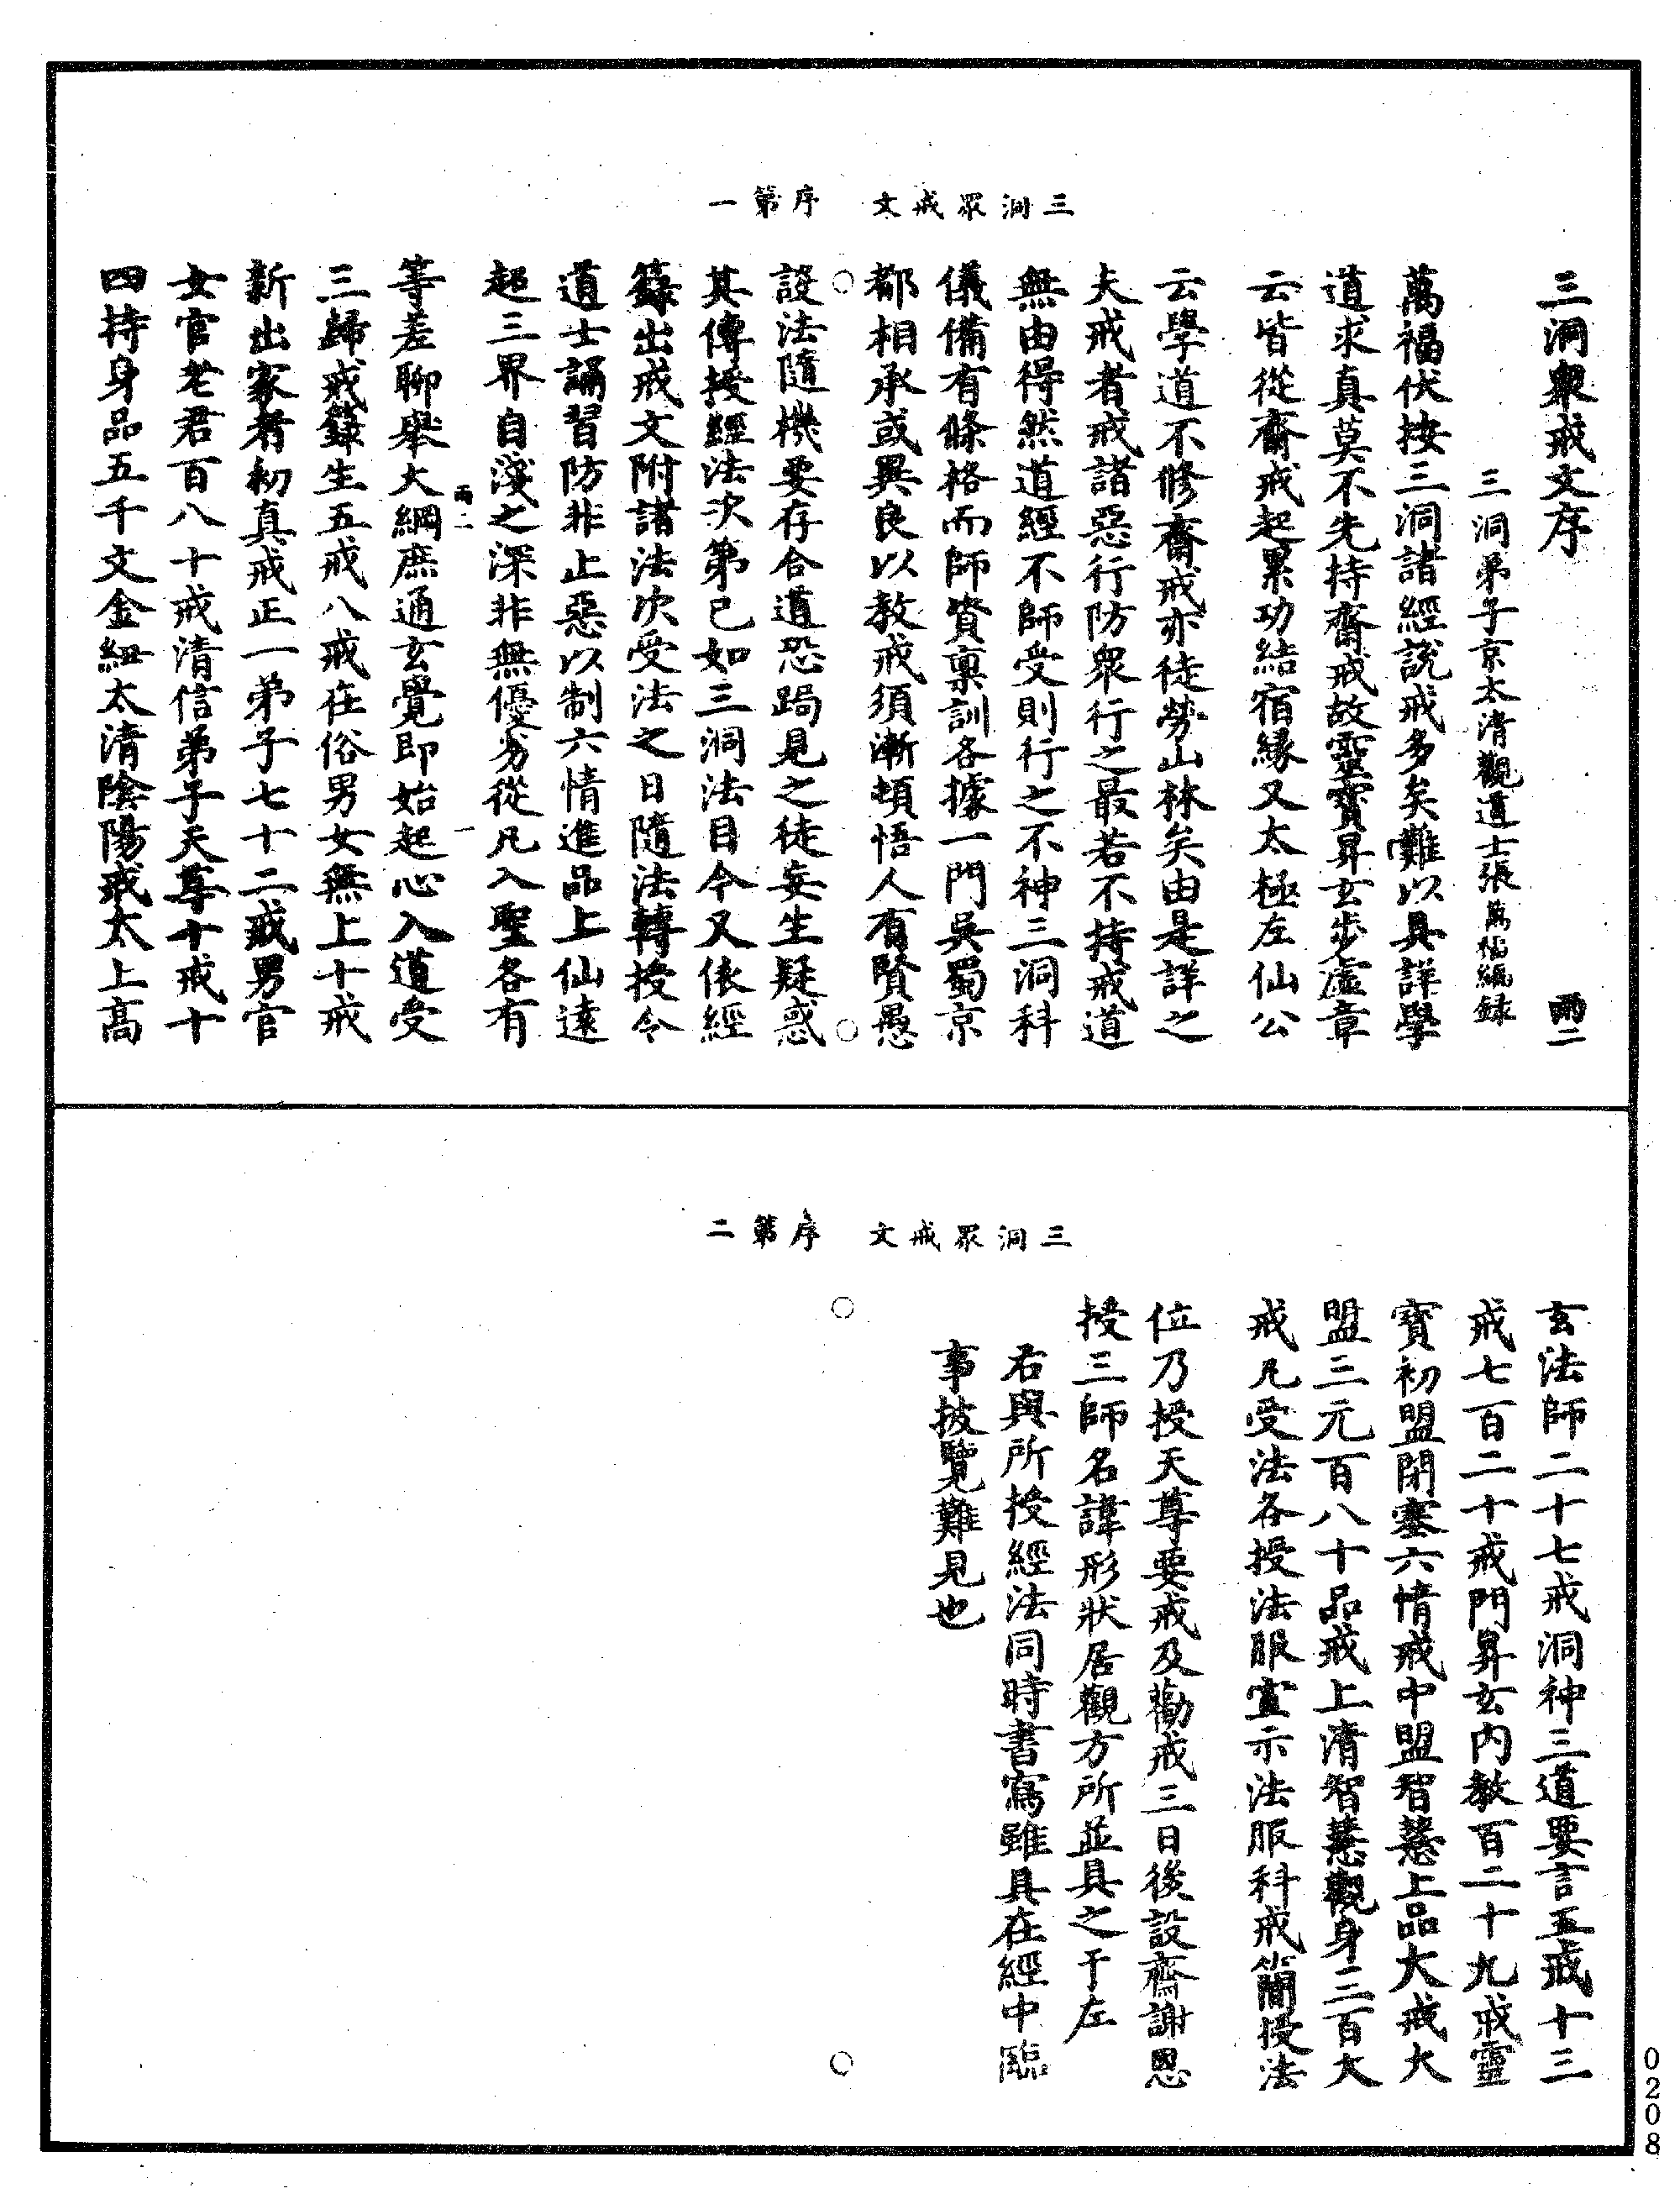 三洞眾戒文　序第一
三洞眾戒文序　雨二
三洞弟子京太清觀道士張萬福編録
萬福伏按三洞諸經說戒多矣難以具詳學
道求真莫不先持齋戒故靈寶昇玄步虛章
云皆從齋戒起累功結宿緣又太極左仙公
云學道不修齋戒亦徒勞山林矣由是詳之
夫戒者戒諸惡行防衆行之最若不持戒道
無由得然道經不師受則行之不神三洞科
儀備有條格而師資稟訓各據一門吳蜀京
都相承或異良以教戒須漸頓悟人有賢愚
設法隨機要存合道恐跼見之徒妄生疑惑
其傳授經法次第已如三洞法目今又依經
籙出戒文附諸法次受法之日隨法轉授令
道士誦習防非止惡以制六情進品上仙遠
超三界自淺之深非無優劣從凡入聖各有
雨二　一
等差聊舉大綱庶通玄覺即始起心入道受
三歸戒籙生五戒八戒在俗男女無上十戒
新出家者初真戒正一弟子七十二戒男官
女官老君百八十戒清信弟子天尊十戒十
四持身品五千文金紐太清陰陽戒太上高
三洞眾戒文　序第二
玄法師二十七戒洞神三道要言五戒十三
戒七百二十戒門昇玄內教百二十九戒靈
寶初盟閉塞六情戒中盟智慧上品大戒大
盟三元百八十品戒上清智慧觀身三百大
戒凡受法各授法服宣示法服科戒簡授法
位乃授天尊要戒及勸戒三日後設齋謝恩
授三師名諱形狀居觀方所並具之于左
右與所授經法同時書寫雖具在經中臨
事披覽難見也
0208